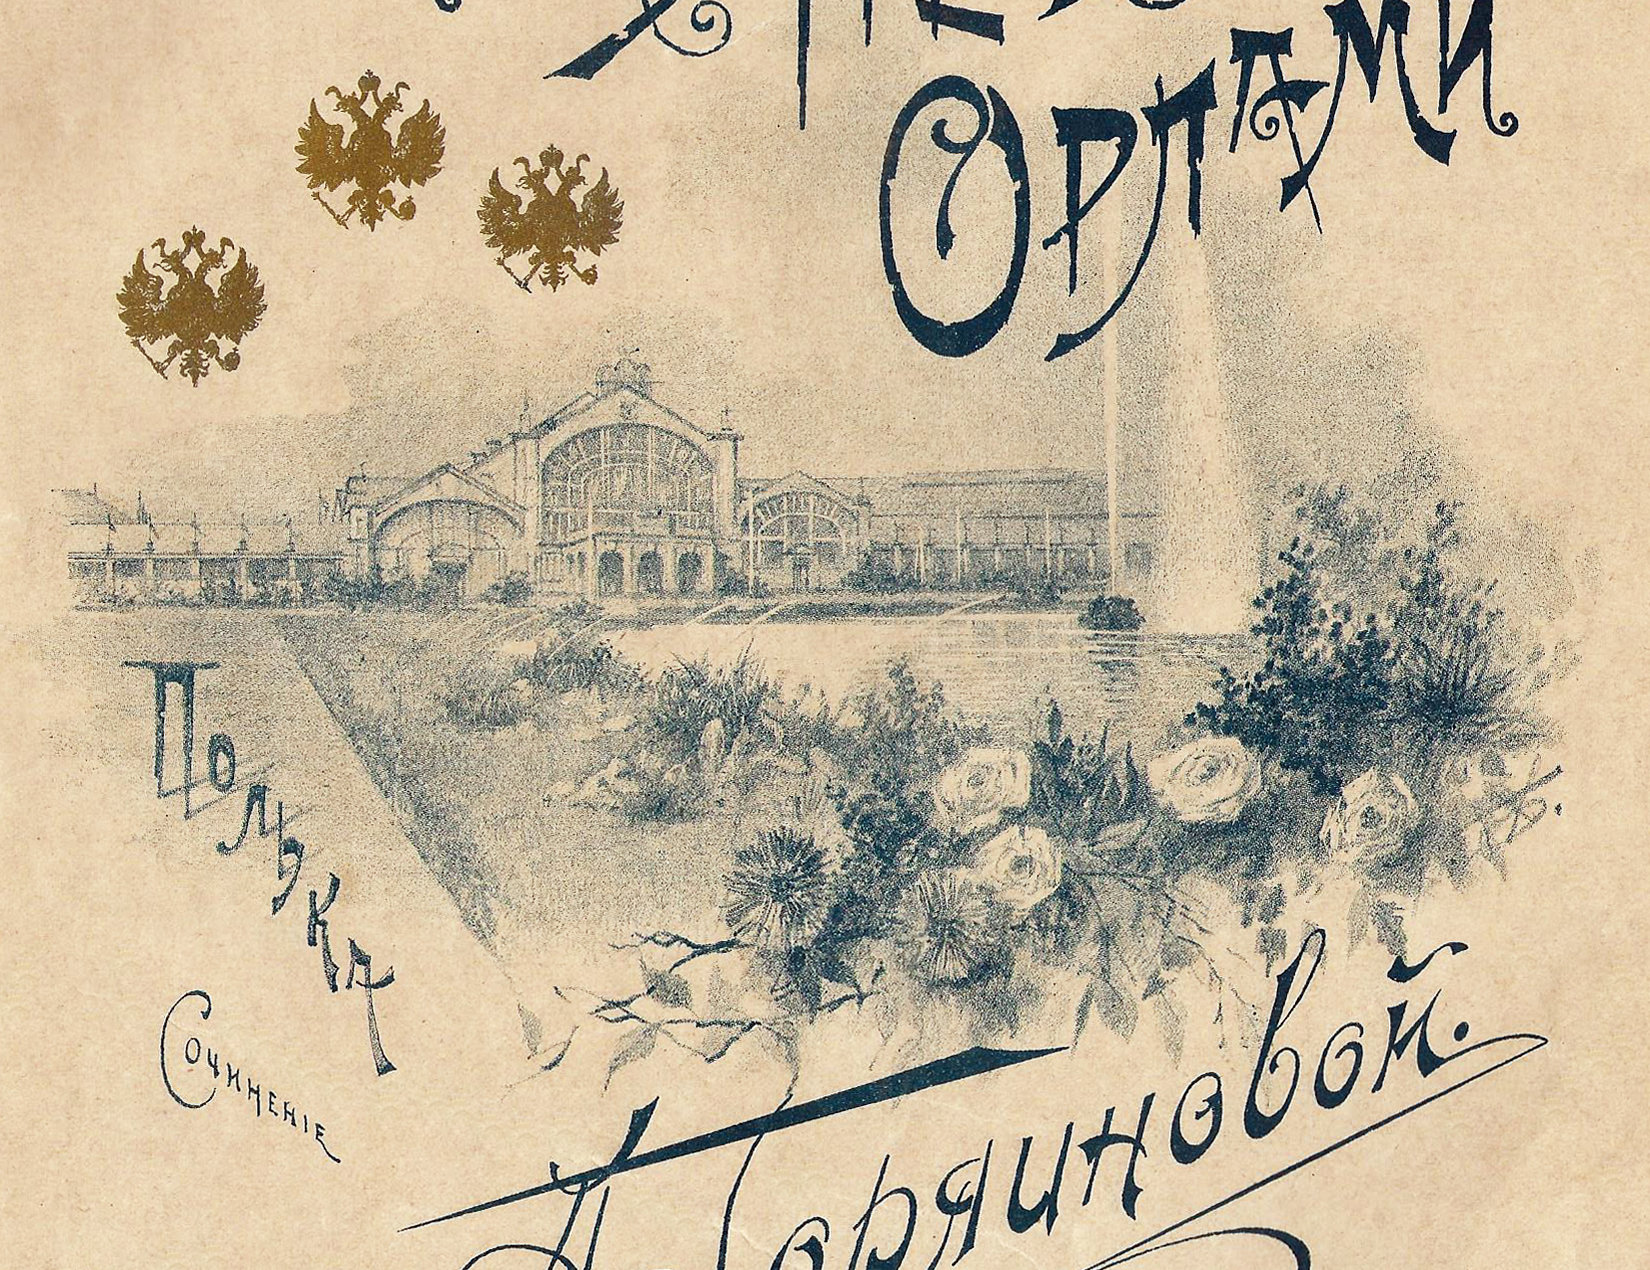 ОРЛАМИ
Полька
Сочиненіе
А Горяиновой.